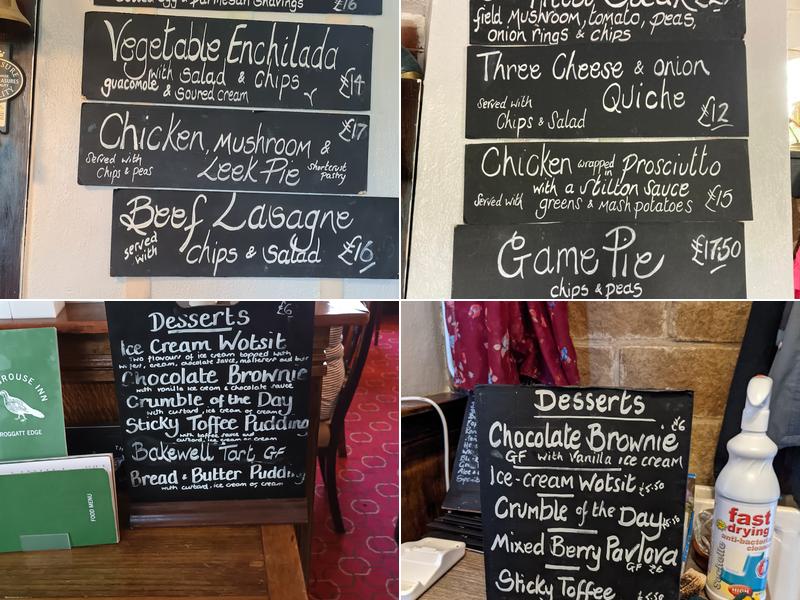 £16
Vegetable Enchilada
with Salad & chips
guacomole & Soured cream
£14
Chicken, Mushroom &
£17
Served with
Chips & peas
Leek Pie
shortcrust
pastry
Beef Lasagne
served
with
chips & Salad
£16
field Mushroom, tomato, peas,
onion rings & chips
Three Cheese & onion
Quiche
served with
Chips & Salad
£12
Chicken wrapped in prosciutto
with a stilton sauce
Served with greens & mash potatoes
£15
Game Pie
£17.50
chips & peas
ROUSE INN
FROGGATT EDGE
FOOD MENU
£6
Desserts
Ice Cream Wotsit
Two flavours of ice cream topped with
Chocolate Brownie
with vanilla ice cream & chocolate sauce
Crumble of the Day
with custard, ice cream or cream
Sticky Toffee Pudding
with toffee sauce and
custard, ice cream or cream
Bakewell Tart GF
Bread & Butter Pudding
with custard, ice cream or cream
Desserts
Chocolate Brownie
£6
GF with Vanilla ice cream
Ice-cream Wotsit £5.50
Crumble of the Day
Mixed Berry Pavlova
GF £6
Sticky Toffee
fast
drying
anti-bacterial
cleaner